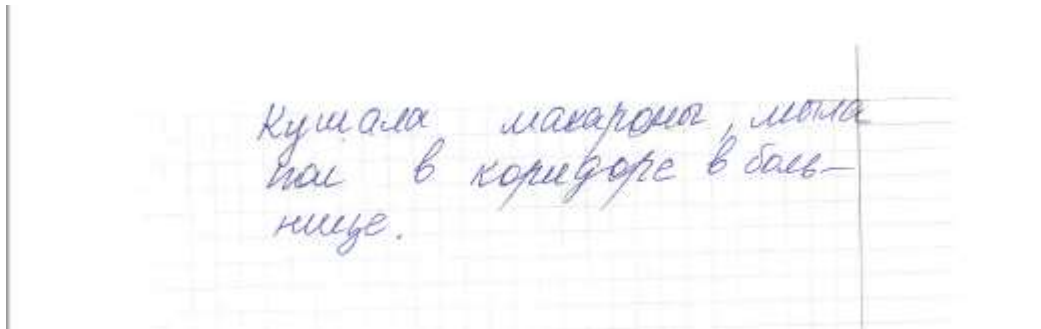 Кушала макароны, мыла
пол в коридоре в боль-
нице.